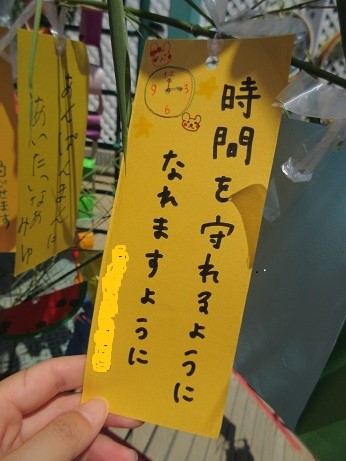 時間を守れるように
なれますように
12
9 3
6
あんぱんまんに
あいたいなあ
みゆ